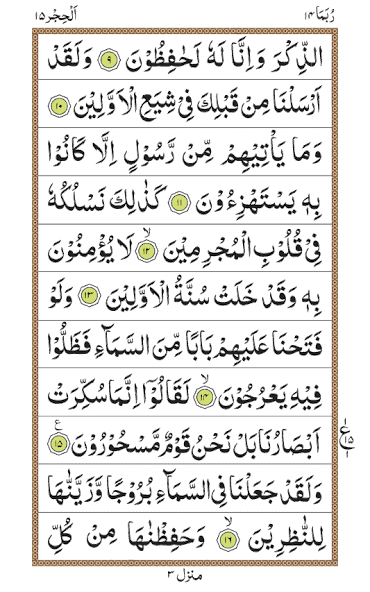 رُبَمَا ١٤
اَلْحِجْر ١٥
الذِّكْرَ وَ اِنَّا لَهٗ لَحٰفِظُوْنَ ۹ وَ لَقَدْ
اَرْسَلْنَا مِنْ قَبْلِكَ فِیْ شِیَعِ الْاَوَّلِیْنَ ۱۰
وَ مَا یَاْتِیْهِمْ مِّنْ رَّسُوْلٍ اِلَّا كَانُوْا
بِهٖ یَسْتَهْزِءُوْنَ ۱۱ كَذٰلِكَ نَسْلُكُهٗ
فِیْ قُلُوْبِ الْمُجْرِمِیْنَ ۙ ۱۲ لَا یُؤْمِنُوْنَ
بِهٖ وَ قَدْ خَلَتْ سُنَّةُ الْاَوَّلِیْنَ ۱۳ وَ لَوْ
فَتَحْنَا عَلَیْهِمْ بَابًا مِّنَ السَّمَآءِ فَظَلُّوْا
فِیْهِ یَعْرُجُوْنَ ۙ ۱۴ لَقَالُوْۤا اِنَّمَا سُكِّرَتْ
اَبْصَارُنَا بَلْ نَحْنُ قَوْمٌ مَّسْحُوْرُوْنَ ۱۵ ع
وَ لَقَدْ جَعَلْنَا فِی السَّمَآءِ بُرُوْجًا وَّ زَیَّنّٰهَا
لِلنّٰظِرِیْنَ ۙ ۱۶ وَ حَفِظْنٰهَا مِنْ كُلِّ
منزل ۳